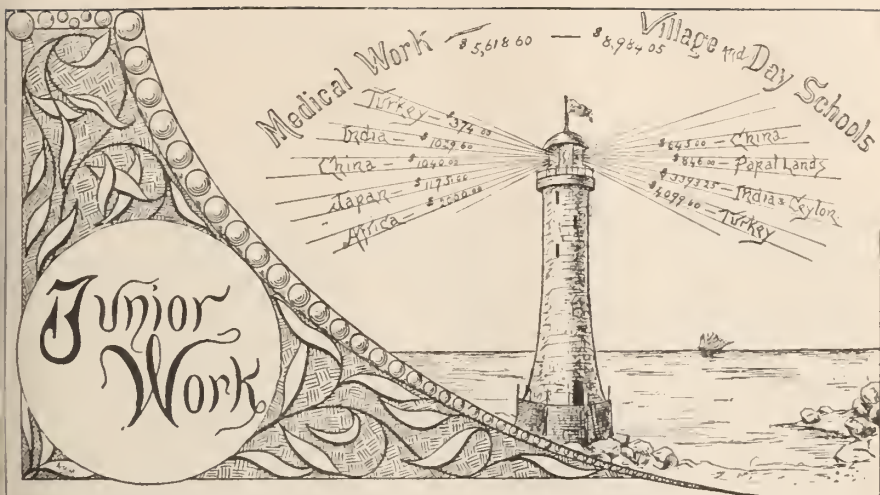 Medical Work — $5,618 60 — $8,984 05 Village and Day Schools
Turkey — $374 00
India — $1029.60
China — $1040.00
Japan — $1175.00
Africa — $2000.00
$645 00 — China
$846 00 — Papal Lands
$3393 25 — India & Ceylon
$4099 80 — Turkey
Junior
Work